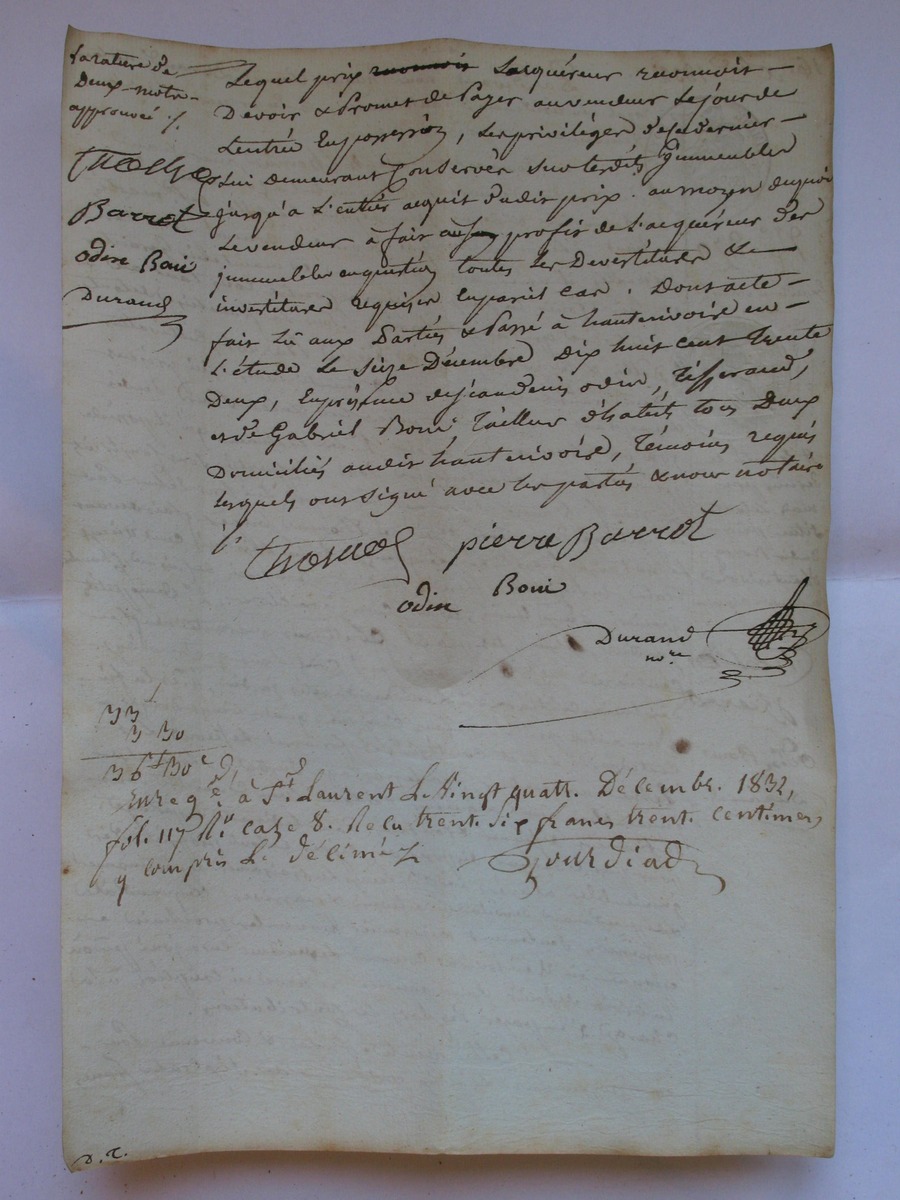 La rature de
Deux mots
approuvée ./.
Thomas
Barrot
odin Boni
Durand
Lequel prix reconnoit L'acquéreur reconnoit
Devoir & Promet de Payer au vendeur Le jour de
L'entrée En possession, Les privilèges de ce dernier
Lui demeurant Conservés sur lesdits Ymmeubles
jusqu'a L'entier acquit dudit prix. au moyen de quoi
Le vendeur à fait au profit de L'acquéreur des
jmmeubles en question toutes Les Devestitures &
investitures requises En pareil cas. Dont acte
fait Lû aux Parties & Passé à hauterivoire en
L'étude Le Seize Décembre Dix huit cent Trente
Deux, En présence de jean denis odin, Tisserand,
et de Gabriel Boni Tailleur d'habits tous Deux
Domiciliés audit hauterivoire, Témoins requis
lesquels ont signé avec les parties & nous notaire
Thomas pierre Barrot
odin Boni
Durand
nore
33
3 30
36f 30c
Enregé à St Laurent Le Vingt quatr. Décembr. 1832,
fol. 117 Ro case 8. Recu trent. six francs trent. centimes
y compris Le décime
Gourdiad
D. T.